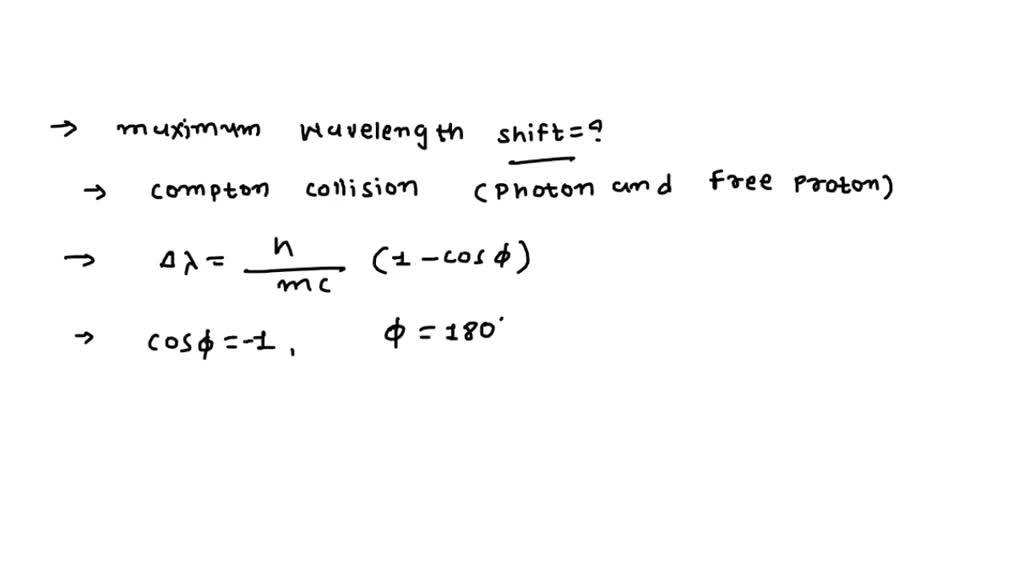 → maximum wavelength shift = ?
→ compton collision (Photon and free proton)
→ Δλ = h/mc (1 - cos ϕ)
→ cos ϕ = -1, ϕ = 180°